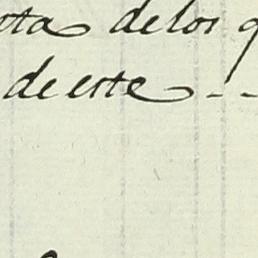 ota de los q
de este - -